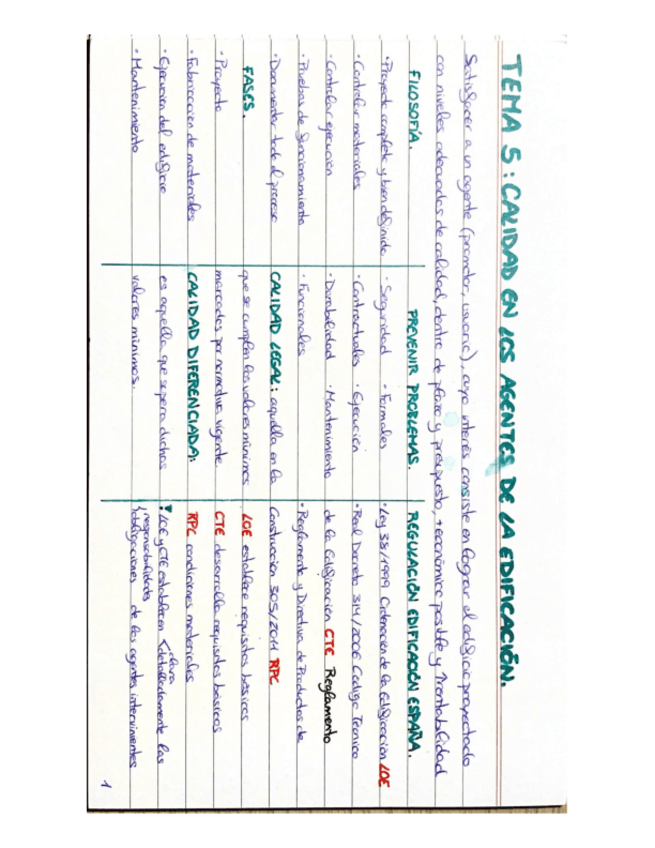 TEMA 5: CALIDAD EN LOS AGENTES DE LA EDIFICACIÓN.
Satisfacer a un agente (promotor, usuario), cuyo interés consiste en lograr el edificio proyectado
con niveles adecuados de calidad, dentro de plazo y presupuesto, + económico posible y ↑rentabilidad
FILOSOFÍA.
· Proyecto completo y bien definido
· Controlar materiales
· Controlar ejecución
· Pruebas de funcionamiento
· Documentar todo el proceso
FASES.
· Proyecto
· Fabricación de materiales
· Ejecución del edificio
· Mantenimiento
PREVENIR PROBLEMAS.
· Seguridad · Formales
· Contractuales · Ejecución
· Durabilidad · Mantenimiento
· Funcionales
CALIDAD LEGAL: aquella en la
que se cumplen los valores mínimos
marcados por normativa vigente
CALIDAD DIFERENCIADA:
es aquella que supera dichos
valores mínimos.
REGULACIÓN EDIFICACIÓN ESPAÑA.
· Ley 38/1999 Ordenación de la Edificación LOE
· Real Decreto 314/2006 Código Técnico
de la Edificación CTE Reglamento
· Reglamento y Directiva de Productos de
Construcción 305/2011 RPC
LOE establece requisitos básicos
CTE desarrolla requisitos básicos
RPC condiciones materiales
LOE y CTE establecen clara y detalladamente las
responsabilidades
y obligaciones de los agentes intervinientes
1